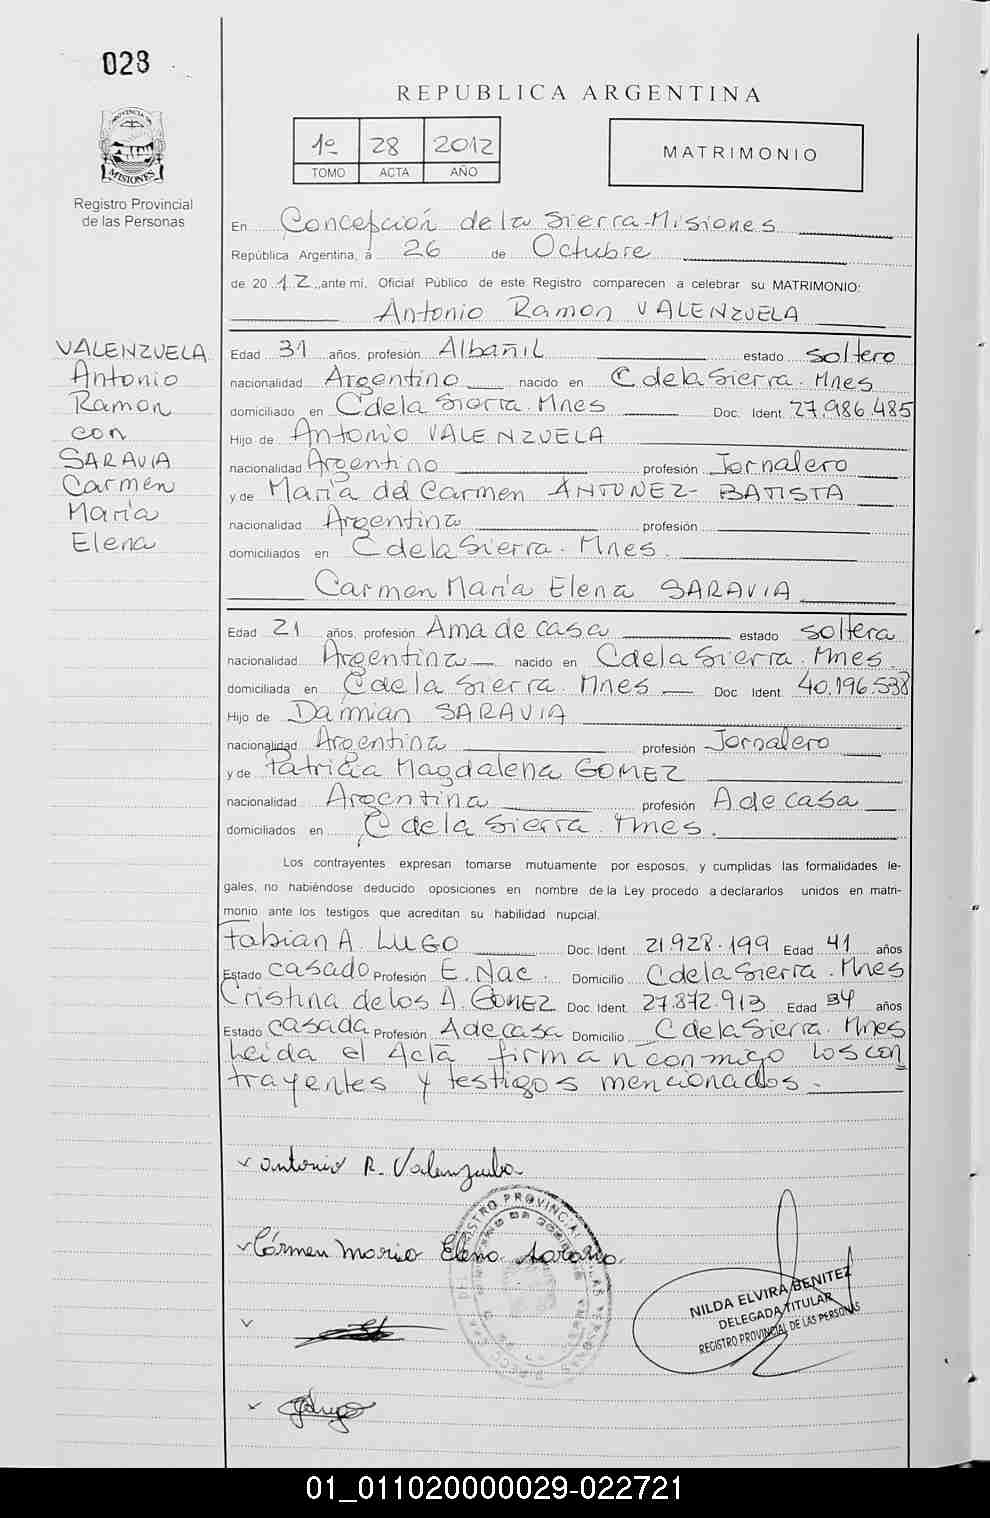 028
PROVINCIA DE
MISIONES
Registro Provincial
de las Personas
REPUBLICA ARGENTINA
1º 28 2012
TOMO ACTA AÑO
MATRIMONIO
En Concepción de la Sierra-Misiones
República Argentina, a 26 de Octubre
de 2012, ante mí, Oficial Público de este Registro comparecen a celebrar su MATRIMONIO:
Antonio Ramon VALENZUELA
VALENZUELA
Antonio
Ramon
con
SARAVIA
Carmen
María
Elena
Edad 31 años, profesión Albañil estado soltero
nacionalidad Argentino nacido en C de la Sierra. Mnes
domiciliado en C de la Sierra. Mnes Doc. Ident. 27.986.485
Hijo de Antonio VALENZUELA
nacionalidad Argentino profesión Jornalero
y de María del Carmen ANTUNEZ- BATISTA
nacionalidad Argentina profesión
domiciliados en C de la Sierra. Mnes.
Carmen María Elena SARAVIA
Edad 21 años, profesión Ama de casa estado soltera
nacionalidad Argentina nacido en C de la Sierra. Mnes.
domiciliada en C de la Sierra. Mnes Doc Ident. 40.196.538
Hijo de Damian SARAVIA
nacionalidad Argentina profesión Jornalero
y de Patricia Magdalena GOMEZ
nacionalidad Argentina profesión A de casa
domiciliados en C de la Sierra. Mnes.
Los contrayentes expresan tomarse mutuamente por esposos, y cumplidas las formalidades le-
gales, no habiéndose deducido oposiciones en nombre de la Ley procedo a declararlos unidos en matri-
monio ante los testigos que acreditan su habilidad nupcial.
Fabian A. LUGO Doc. Ident. 21.928.199 Edad 41 años
Estado casado Profesión E. Nac. Domicilio C de la Sierra. Mnes
Cristina de los A. GOMEZ Doc. Ident. 27.872.913 Edad 34 años
Estado casada Profesión A de casa Domicilio C de la Sierra. Mnes
Leida el Acta firman conmigo los con
trayentes y testigos mencionados.
Antonio R. Valenzuela
Carmen Maria Elena Saravia.
NILDA ELVIRA BENITEZ
DELEGADA TITULAR
REGISTRO PROVINCIAL DE LAS PERSONAS
01_011020000029-022721